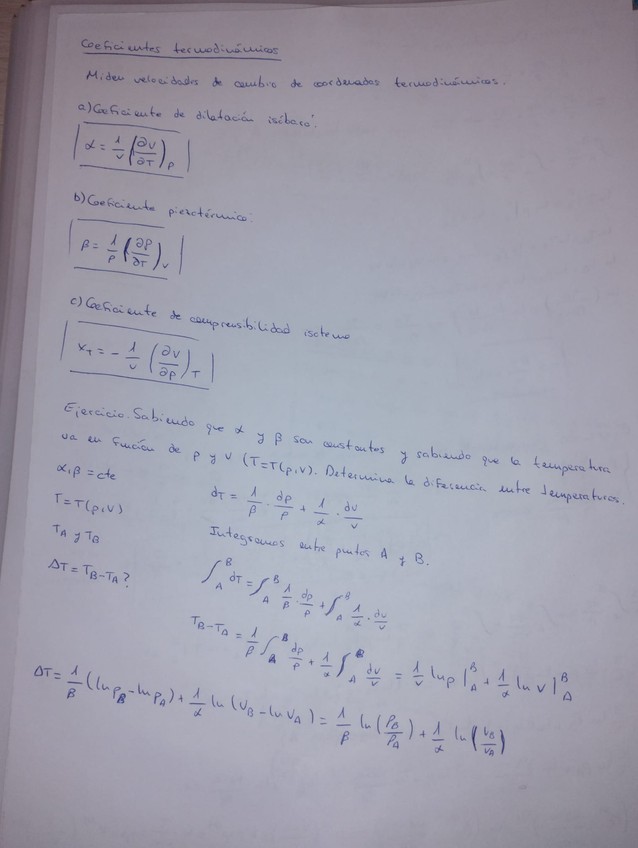 Coeficientes termodinámicos
Miden velocidades de cambio de coordenadas termodinámicas.
a) Coeficiente de dilatación isóbara:
α = 1/v (∂v/∂T)p
b) Coeficiente piezotérmico:
β = 1/p (∂p/∂T)v
c) Coeficiente de compresibilidad isotermo
χT = - 1/v (∂v/∂p)T
Ejercicio: Sabiendo que α y β son constantes y sabiendo que la temperatura
va en función de p y v (T=T(p,v). Determina la diferencia entre temperaturas.
α, β = cte
dT = 1/β · dp/p + 1/α · dv/v
T=T(p,v)
Integramos entre puntos A y B.
TA y TB
ΔT = TB-TA?
∫A^B dT = ∫A^B 1/β · dp/p + ∫A^B 1/α · dv/v
TB-TA = 1/β ∫A^B dp/p + 1/α ∫A^B dv/v = 1/v ln p |A^B + 1/α ln v |A^B
ΔT = 1/β (ln pB - ln pA) + 1/α ln (vB - ln vA) = 1/β ln (pB/pA) + 1/α ln (vB/vA)